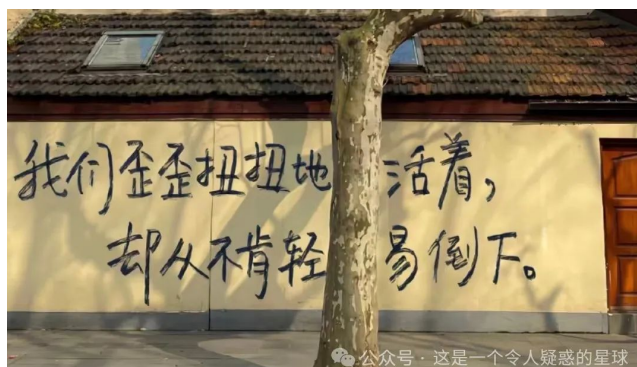 我们歪歪扭扭地活着，
却从不肯轻易倒下。
公众号·这是一个令人疑惑的星球